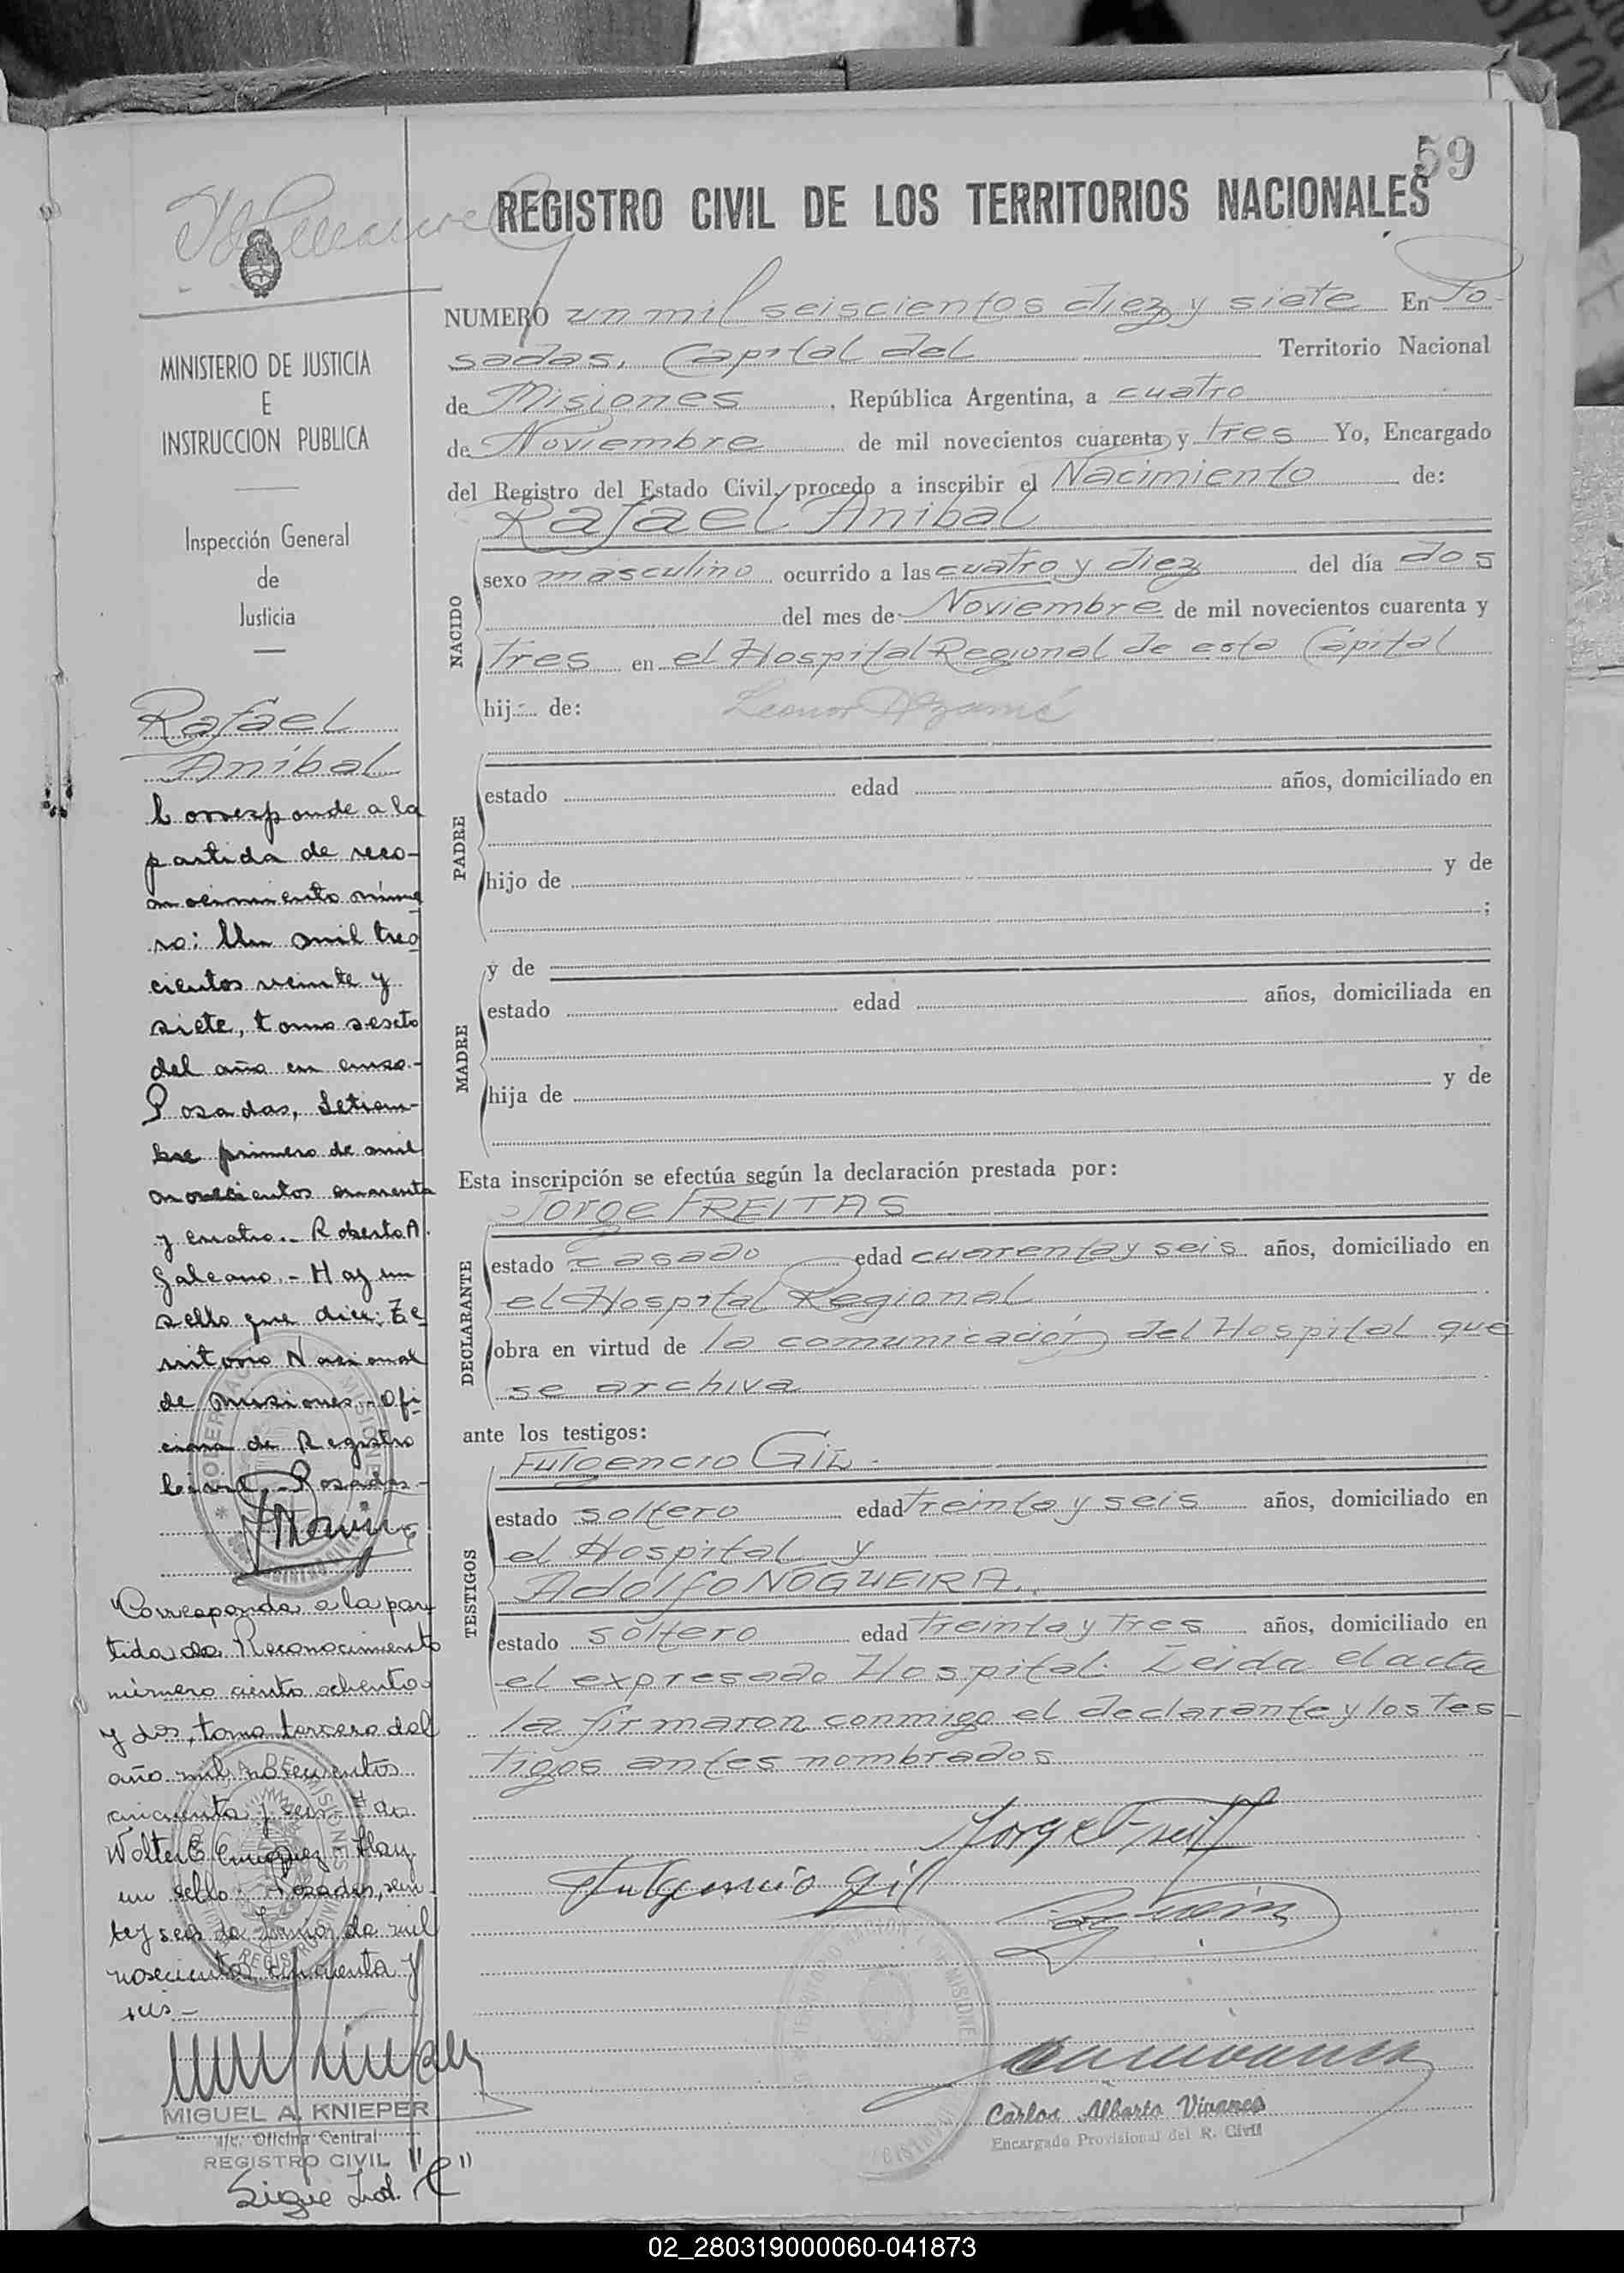 59
REGISTRO CIVIL DE LOS TERRITORIOS NACIONALES
MINISTERIO DE JUSTICIA
E
INSTRUCCION PUBLICA
Inspección General
de
Justicia
Rafael
Anibal
Corresponde a la
partida de reco-
nocimiento núme
ro: Un mil tres
cientos veinte y
siete, tomo sexto
del año en curso.-
Posadas, Setiem-
bre primero de mil
novecientos cuarenta
y cuatro.- Roberto A.
Galeano.- Hay un
sello que dice: Te
rritorio Nacional
de Misiones.- Ofi
cina de Registro
Civil.- Posadas.-
Corresponde a la par
tida de Reconocimiento
número ciento ochenta
y dos, tomo tercero del
año mil novecientos
cincuenta y seis.- Fdo.
Walter E. Hay
un sello. Posadas, vein
te y seis de Junio de mil
novecientos cincuenta y
seis.-
MIGUEL A. KNIEPER
a/c. Oficina Central
REGISTRO CIVIL
Sigue Ind. "C"
NUMERO un mil seiscientos diez y siete En Po-
sadas, Capital del Territorio Nacional
de Misiones, República Argentina, a cuatro
de Noviembre de mil novecientos cuarenta y tres Yo, Encargado
del Registro del Estado Civil, procedo a inscribir el Nacimiento de:
Rafael Anibal
NACIDO
sexo masculino ocurrido a las cuatro y diez del día dos
del mes de Noviembre de mil novecientos cuarenta y
tres en el Hospital Regional de esta Capital
hij de: Leonor
PADRE
estado edad años, domiciliado en
hijo de y de
;
MADRE
y de
estado edad años, domiciliada en
hija de y de
Esta inscripción se efectúa según la declaración prestada por:
Jorge FREITAS
DECLARANTE
estado casado edad cuarenta y seis años, domiciliado en
el Hospital Regional
obra en virtud de la comunicación del Hospital que
se archiva
ante los testigos:
Fulgencio GIL.
TESTIGOS
estado soltero edad treinta y seis años, domiciliado en
el Hospital y
Adolfo NOGUEIRA.
estado soltero edad treinta y tres años, domiciliado en
el expresado Hospital. Leida el acta
la firmaron conmigo el declarante y los tes-
tigos antes nombrados
Fulgencio Gill
Carlos Alberto Vivanco
Encargado Provisional del R. Civil
02_280319000060-041873